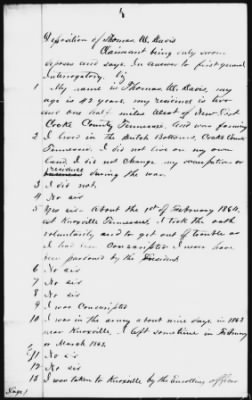 Deposition of Thomas W. Davis
Claimant being duly sworn
deposes and says. In answer to first general
Interrogatory.
1 My name is Thomas W. Davis, my
age is 42 years, my residence is two
and one half miles West of
Cocke County Tennessee, and was farming
2 I lived in the Dutch Bottoms, Cocke County
Tennessee. I did not live on my own
land. I did not change my occupation or
residence
during the war.
3 I did not.
4 No sir
5 Yes sir. About the 1st of February 1864,
at Knoxville Tennessee. I took the oath
voluntarily and to get out of trouble as
I had been Conscripted I never have
been pardoned by the President
6 No sir
7 No sir
8 No sir
9 I was Conscripted
10 I was in the army about nine days, in 1863
near Knoxville. I left sometime in February
or March 1863.
11 No sir
12 No sir
13 I was taken to Knoxville by the Enrolling officer
Page 1